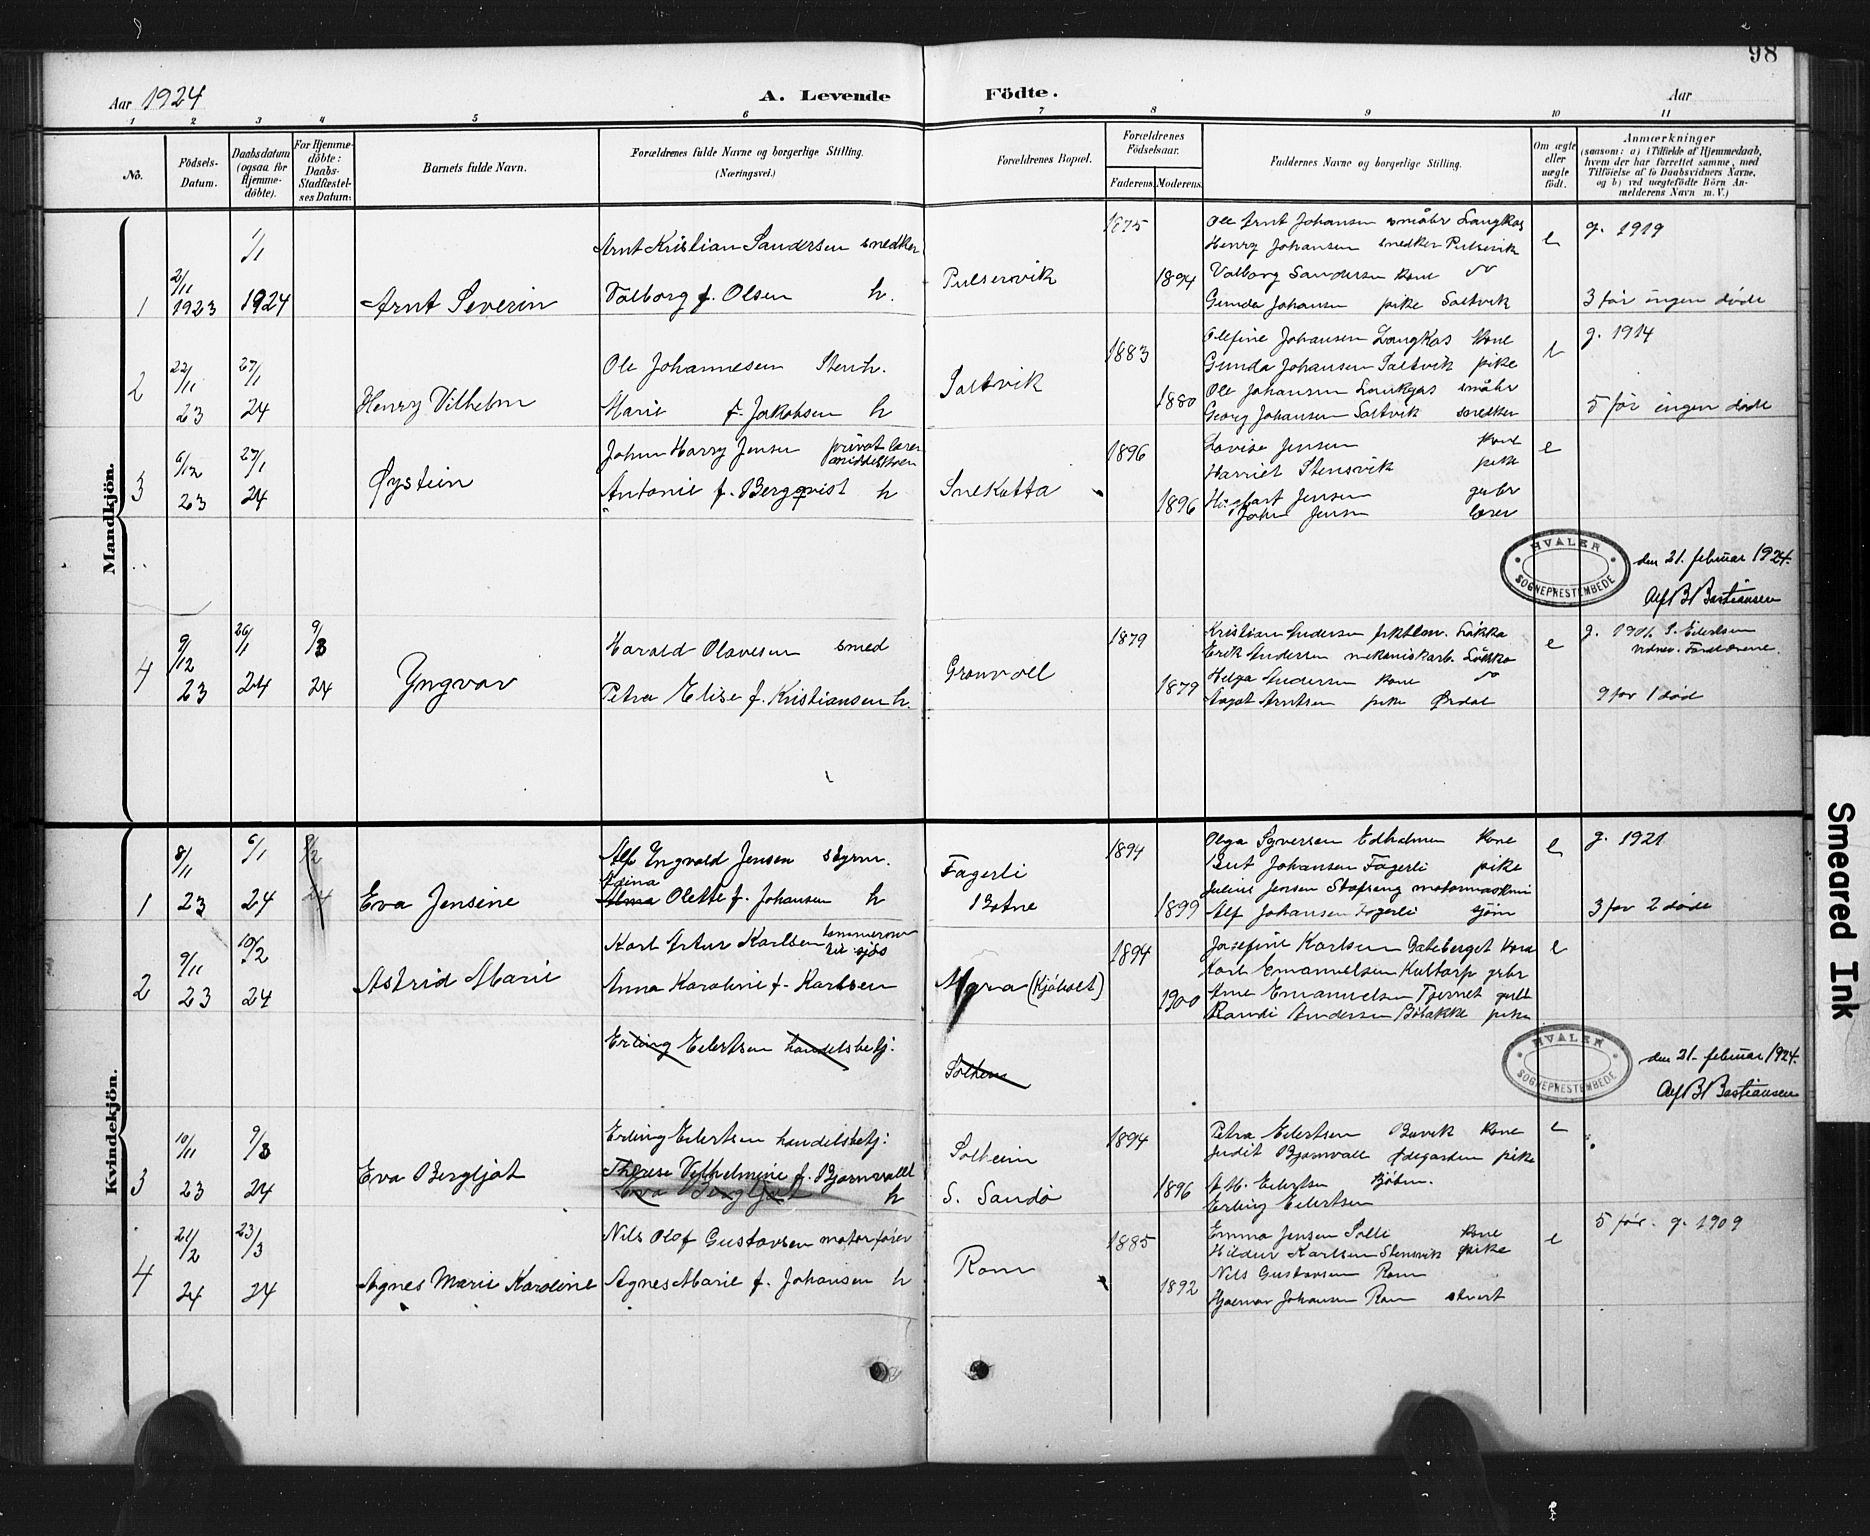 98
Aar 1924
A. Levende
Födte.
Aar
1 2 3 4 5 6 7 8 9 10 11
No.
Födsels-Datum.
Daabsdatum (ogsaa for Hjemme-döbte).
For Hjemme-döbte: Daabs-Stadfæstel-ses Datum:
Barnets fulde Navn.
Forældrenes fulde Navne og borgerlige Stilling.
(Næringsvei.)
Forældrenes Bopæl.
Forældrenes Födselsaar.
Faderens. Moderens.
Faddernes Navne og borgerlige Stilling.
Om ægte eller uægte födt.
Anmærkninger
(saasom: a) i Tilfælde af Hjemmedaab,
hvem der har forrettet samme, med
Tilföielse af to Daabsvidners Navne,
og b) ved uægtefödte Börn An-
melderens Navn m. V.)
Mandkjön.
1 2/11 1923 1/1 1924 Arnt Severin
Arnt Kristian Sandersen snedker
Valborg f. Olsen h.
Pulservik
1875 1894
Ole Arnt Johansen småbr Langkas
Henry Johansen snedker Pulservik
Valborg Sandersen kone
Gunda Johansen pike Saltvik
e
g. 1919
3 før ingen døde
2 22/11 23 27/1 24 Henry Vilhelm
Ole Johannesen Stenh.
Marie f. Jakobsen h
Saltvik
1883 1880
Olefine Johansen Langkas kone
Gunda Johansen Saltvik pike
Ole Johansen småbr
Georg Johansen Saltvik snedker
e
g. 1914
5 før ingen døde
3 6/12 23 27/1 24 Øystein
Johan Harry Jensen privat lærer middelskolen
Antonie f. Bergqvist h
Snekotta
1896 1896
Lovise Jensen kone
Harriet Stensvik pike
Jensen gbr
John Jensen lærer
e
HVALER SOGNEPRESTEMBEDE
den 21. februar 1924.
Alf B Bastiansen
4 9/12 23 26/1 24 9/3 24 Yngvar
Harald Olavesen smed
Petra Elise f. Kristiansen h.
Grønvoll
1879 1879
Kristian Andersen Løkka
Erik Andersen mekanisk arb. Løkka
Helga Andersen kone
Aagot Arntsen pike Ørdal
e
g. 1901
9 før 1 død
Kvindekjön.
1 8/11 23 6/1 24 Eva Jensine
Alf Yngvald Jensen styrm.
Edina
Alma Olette f. Johansen h
Fagerli
Botne
1894 1899
Olga Syversen Edholmen kone
Johansen Fagerli pike
Julius Jensen Stafseng motormaskin
Alf Johansen Fagerli sjøm
e
g. 1921
3 før 2 døde
2 9/11 23 10/2 24 Astrid Marie
Karl Artur Karlsen tømmermann til sjøs
Anna Karoline f. Karlsen
Myra (Kjøholt)
1894 1900
Josefine Karlsen kone
Karl Emanuelsen grbr
Arne Emanuelsen Tjernet
Randi Andersen Bøbakke pike
e
Erling Eilertsen handelsbetj.
Solheim
HVALER SOGNEPRESTEMBEDE
den 21. februar 1924.
Alf B Bastiansen
3 10/11 23 9/3 24 Eva Bergljot
Erling Eilertsen handelsbetj.
Therese Vilhelmine f. Bjørnvall
Eva Bergljot h
Solheim
S. Sandø
1894 1896
Petra Eilertsen kone
Judit Bjørnvall Ødegarden pike
A. M. Eilertsen kjøbm.
Erling Eilertsen
e
4 21/2 24 23/3 24 Agnes Marie Karoline
Nils Olof Gustavsen motorfører
Agnes Marie f. Johansen h
Rom
1885 1892
Emma Jensen Solli kone
Hildur Karlsen Stensvik pike
Nils Gustavsen Rom
Hjalmar Johansen Rom stuert
e
5 før. g. 1909
Smeared Ink